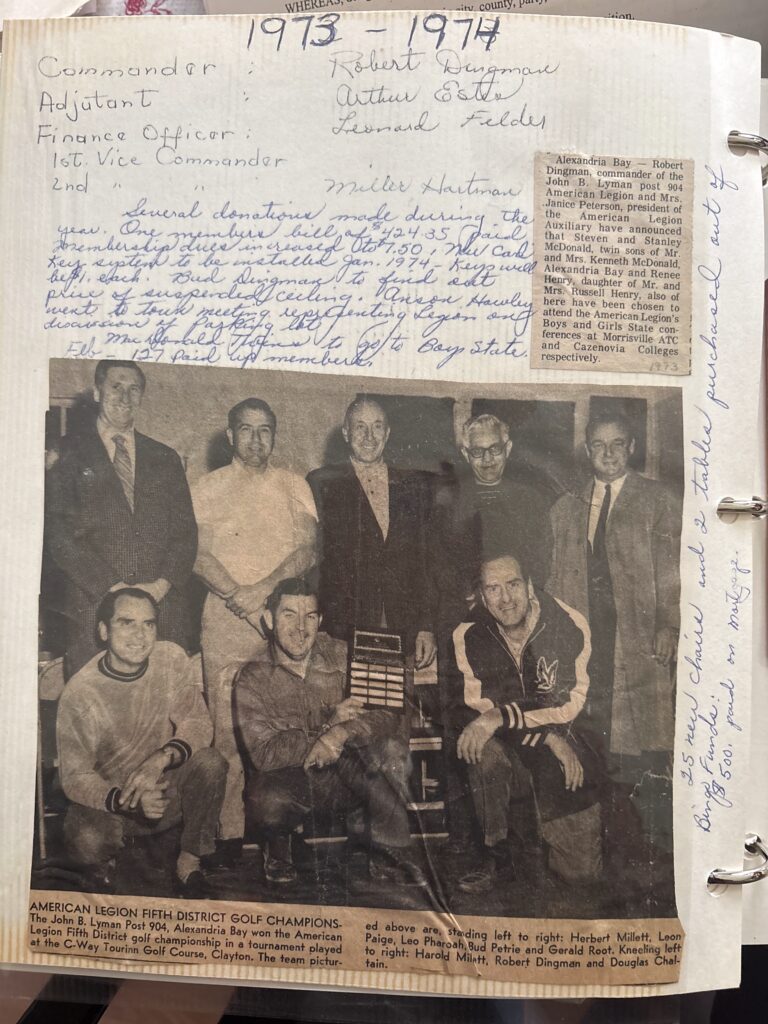 WHEREAS,
county, party,
1973 - 1974
Commander : Robert Dingman
Adjutant : Arthur Estes
Finance Officer : Leonard Felder
1st. Vice Commander
2nd " " Miller Hartman
Several donations made during the
year. One members bill of $424.35 paid
Membership dues increased to $7.50, New Card
Key system to be installed Jan. 1974 - Keys will
be $1. each. Bud Dingman to find out
price of suspended ceiling. Anson Hawley
went to town meeting representing Legion on
discussion of parking lot
McDonald twins to go to Boys State.
Feb - 127 paid up members.
Alexandria Bay — Robert
Dingman, commander of the
John B. Lyman post 904
American Legion and Mrs.
Janice Peterson, president of
the American Legion
Auxiliary have announced
that Steven and Stanley
McDonald, twin sons of Mr.
and Mrs. Kenneth McDonald,
Alexandria Bay and Renee
Henry, daughter of Mr. and
Mrs. Russell Henry, also of
here have been chosen to
attend the American Legion's
Boys and Girls State con-
ferences at Morrisville ATC
and Cazenovia Colleges
respectively.
1973
25 new chairs and 2 tables purchased out of
Bingo Funds.
$500. paid on mortgage.
AMERICAN LEGION FIFTH DISTRICT GOLF CHAMPIONS-
The John B. Lyman Post 904, Alexandria Bay won the American
Legion Fifth District golf championship in a tournament played
at the C-Way Tourinn Golf Course, Clayton. The team pictur-
ed above are, standing left to right: Herbert Millett, Leon
Paige, Leo Pharoah, Bud Petrie and Gerald Root. Kneeling left
to right: Harold Millett, Robert Dingman and Douglas Chal-
tain.